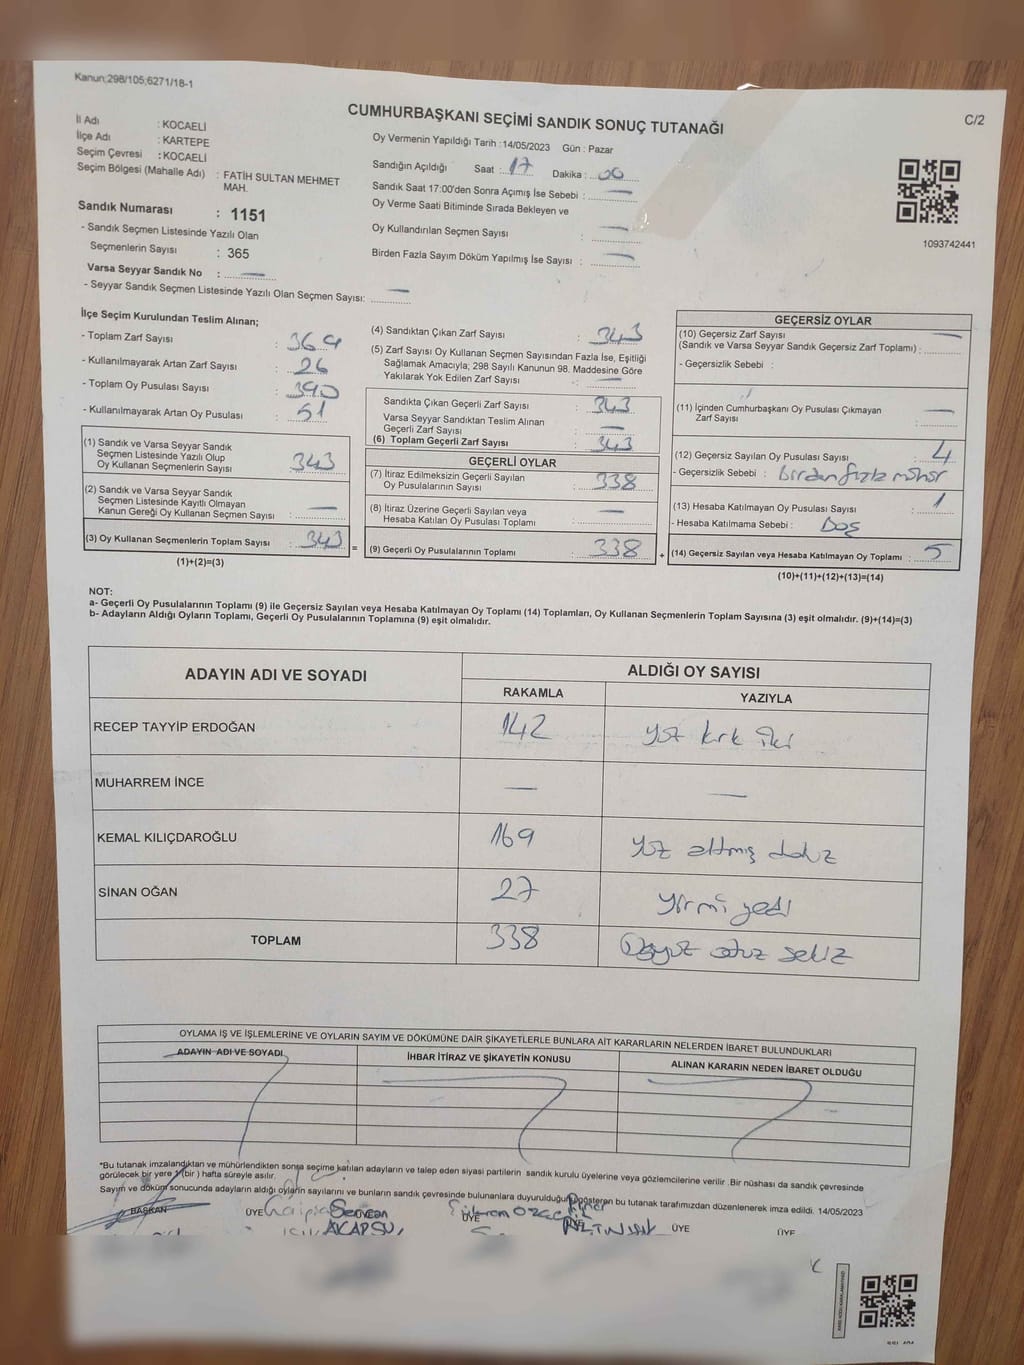 Kanun;298/105;6271/18-1
CUMHURBAŞKANI SEÇİMİ SANDIK SONUÇ TUTANAĞI
C/2
İl Adı : KOCAELİ
İlçe Adı : KARTEPE
Seçim Çevresi : KOCAELİ
Seçim Bölgesi (Mahalle Adı) : FATİH SULTAN MEHMET
MAH.
Sandık Numarası : 1151
- Sandık Seçmen Listesinde Yazılı Olan
Seçmenlerin Sayısı : 365
Varsa Seyyar Sandık No : —
- Seyyar Sandık Seçmen Listesinde Yazılı Olan Seçmen Sayısı: —
Oy Vermenin Yapıldığı Tarih : 14/05/2023 Gün : Pazar
Sandığın Açıldığı Saat : 17 Dakika : 00
Sandık Saat 17:00'den Sonra Açımış İse Sebebi : —
Oy Verme Saati Bitiminde Sırada Bekleyen ve
Oy Kullandırılan Seçmen Sayısı : —
Birden Fazla Sayım Döküm Yapılmış İse Sayısı : —
1093742441
İlçe Seçim Kurulundan Teslim Alınan;
- Toplam Zarf Sayısı : 369
- Kullanılmayarak Artan Zarf Sayısı : 26
- Toplam Oy Pusulası Sayısı : 390
- Kullanılmayarak Artan Oy Pusulası : 51
(1) Sandık ve Varsa Seyyar Sandık
Seçmen Listesinde Yazılı Olup
Oy Kullanan Seçmenlerin Sayısı : 343
(2) Sandık ve Varsa Seyyar Sandık
Seçmen Listesinde Kayıtlı Olmayan
Kanun Gereği Oy Kullanan Seçmen Sayısı : —
(3) Oy Kullanan Seçmenlerin Toplam Sayısı : 343
(1)+(2)=(3)
(4) Sandıktan Çıkan Zarf Sayısı : 343
(5) Zarf Sayısı Oy Kullanan Seçmen Sayısından Fazla İse, Eşitliği
Sağlamak Amacıyla; 298 Sayılı Kanunun 98. Maddesine Göre
Yakılarak Yok Edilen Zarf Sayısı : —
Sandıkta Çıkan Geçerli Zarf Sayısı : 343
Varsa Seyyar Sandıktan Teslim Alınan
Geçerli Zarf Sayısı : —
(6) Toplam Geçerli Zarf Sayısı : 343
GEÇERLİ OYLAR
(7) İtiraz Edilmeksizin Geçerli Sayılan
Oy Pusulalarının Sayısı : 338
(8) İtiraz Üzerine Geçerli Sayılan veya
Hesaba Katılan Oy Pusulası Toplamı : —
= (9) Geçerli Oy Pusulalarının Toplamı : 338 +
GEÇERSİZ OYLAR
(10) Geçersiz Zarf Sayısı —
(Sandık ve Varsa Seyyar Sandık Geçersiz Zarf Toplamı) :
- Geçersizlik Sebebi :
(11) İçinden Cumhurbaşkanı Oy Pusulası Çıkmayan
Zarf Sayısı : —
(12) Geçersiz Sayılan Oy Pusulası Sayısı : 4
- Geçersizlik Sebebi : birden fazla mühür
(13) Hesaba Katılmayan Oy Pusulası Sayısı : 1
- Hesaba Katılmama Sebebi : Boş
(14) Geçersiz Sayılan veya Hesaba Katılmayan Oy Toplamı : 5
(10)+(11)+(12)+(13)=(14)
NOT:
a- Geçerli Oy Pusulalarının Toplamı (9) ile Geçersiz Sayılan veya Hesaba Katılmayan Oy Toplamı (14) Toplamları, Oy Kullanan Seçmenlerin Toplam Sayısına (3) eşit olmalıdır. (9)+(14)=(3)
b- Adayların Aldığı Oyların Toplamı, Geçerli Oy Pusulalarının Toplamına (9) eşit olmalıdır.
ADAYIN ADI VE SOYADI
ALDIĞI OY SAYISI
RAKAMLA YAZIYLA
RECEP TAYYİP ERDOĞAN 142 yüz kırk iki
MUHARREM İNCE — —
KEMAL KILIÇDAROĞLU 169 yüz altmış dokuz
SİNAN OĞAN 27 yirmi yedi
TOPLAM 338 üçyüz otuz sekiz
OYLAMA İŞ VE İŞLEMLERİNE VE OYLARIN SAYIM VE DÖKÜMÜNE DAİR ŞİKAYETLERLE BUNLARA AİT KARARLARIN NELERDEN İBARET BULUNDUKLARI
ADAYIN ADI VE SOYADI İHBAR İTİRAZ VE ŞİKAYETİN KONUSU ALINAN KARARIN NEDEN İBARET OLDUĞU
*Bu tutanak imzalandıktan ve mühürlendikten sonra seçime katılan adayların ve talep eden siyasi partilerin sandık kurulu üyelerine veya gözlemcilerine verilir .Bir nüshası da sandık çevresinde
görülecek bir yere 1 (bir ) hafta süreyle asılır.
Sayım ve döküm sonucunda adayların aldığı oyların sayılarını ve bunların sandık çevresinde bulunanlara duyurulduğunu gösteren bu tutanak tarafımızdan düzenlenerek imza edildi. 14/05/2023
BAŞKAN ÜYE ÜYE ÜYE ÜYE ÜYE ÜYE
AKAPSU